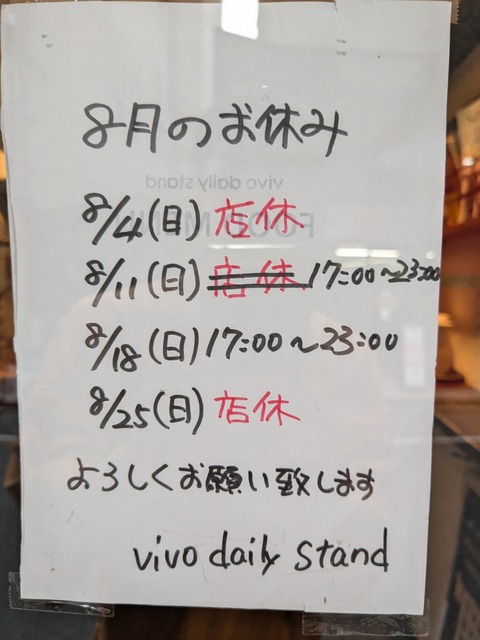 8月のお休み
8/4(日) 店休
8/11(日) 店休 17:00~23:00
8/18(日) 17:00~23:00
8/25(日) 店休
よろしくお願い致します
vivo daily stand
vivo daily stand
FOOD MENU